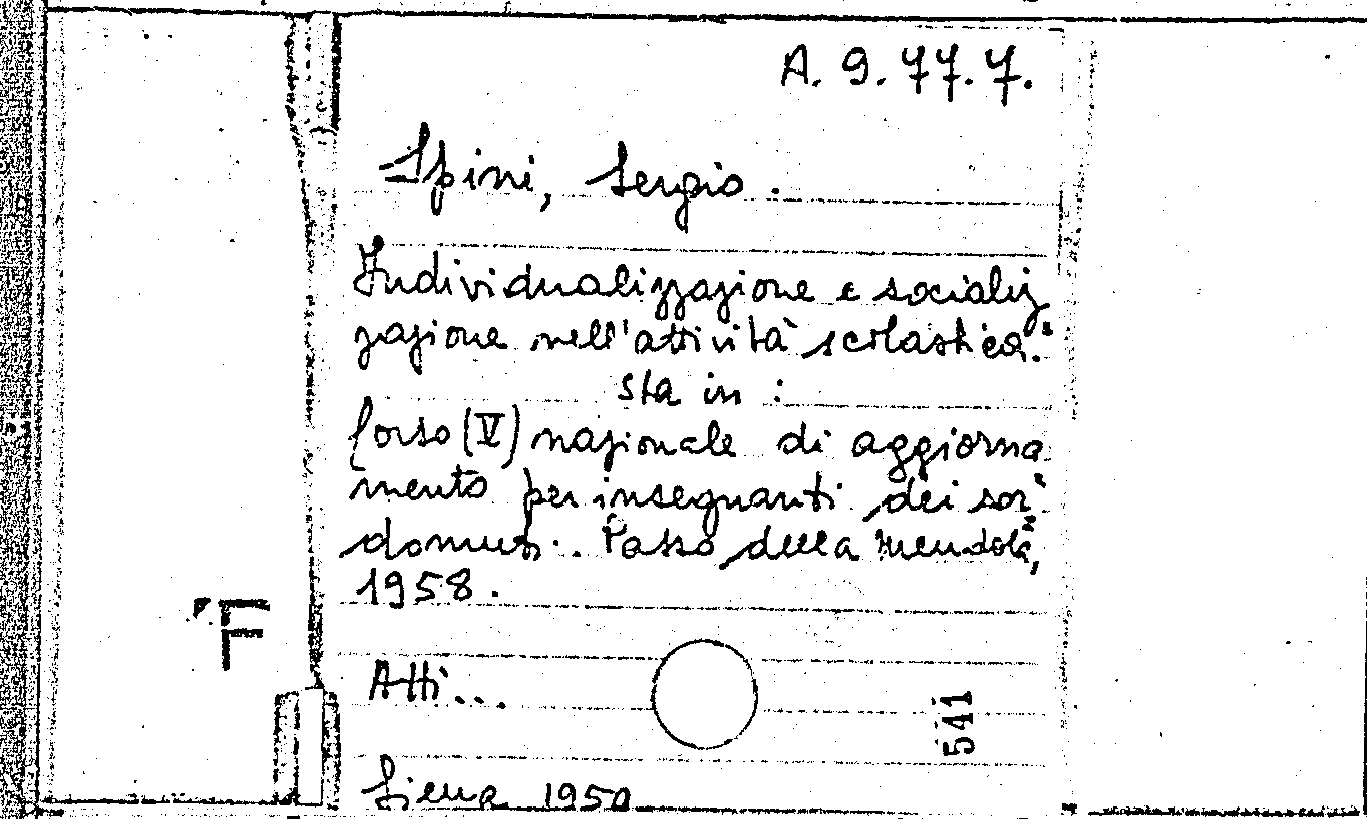 A. 9. 77. 7.
Spini, Sergio.
Individualizzazione e socializ
zazione nell'attività scolastica.
sta in :
Corso (V) nazionale di aggiorna
mento per insegnanti dei sor
domuti. Passo della Mendola,
1958.
F
Atti...
541
Siena